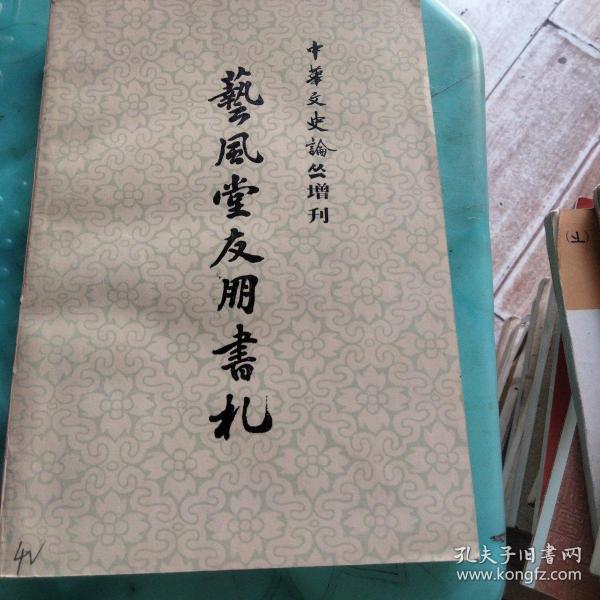 中華文史論丛增刊
藝風堂友朋書札
(上)
4
孔夫子旧書网
www.kongfz.com